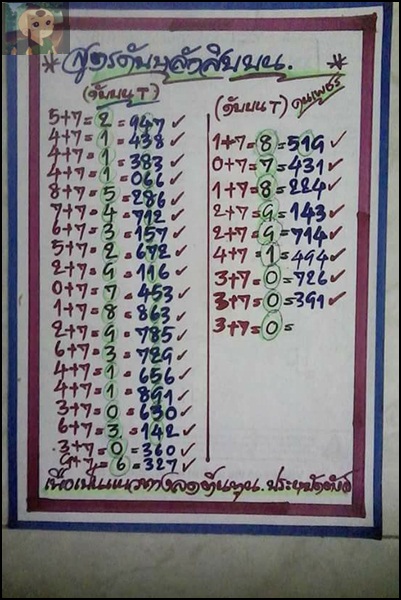 * สูตรดับบนหลักสิบบน. *
(ดับบน T)
5+7=2=947✓
4+7=1=438✓
4+7=1=383✓
4+7=1=066✓
8+7=5=286✓
7+7=4=712✓
6+7=3=157✓
5+7=2=672✓
2+7=9=116✓
0+7=7=453✓
1+7=8=863✓
2+7=9=785✓
6+7=3=729✓
4+7=1=656✓
4+7=1=891✓
3+7=0=630✓
6+7=3=142✓
3+7=0=360✓
9+7=6=327✓
(ดับบน T)
1+7=8=519✓
0+7=7=431✓
1+7=8=224✓
2+7=9=143✓
2+7=9=714✓
4+7=1=494✓
3+7=0=726✓
3+7=0=391✓
3+7=0=
เพื่อเป็นแนวทางลดต้นทุน.